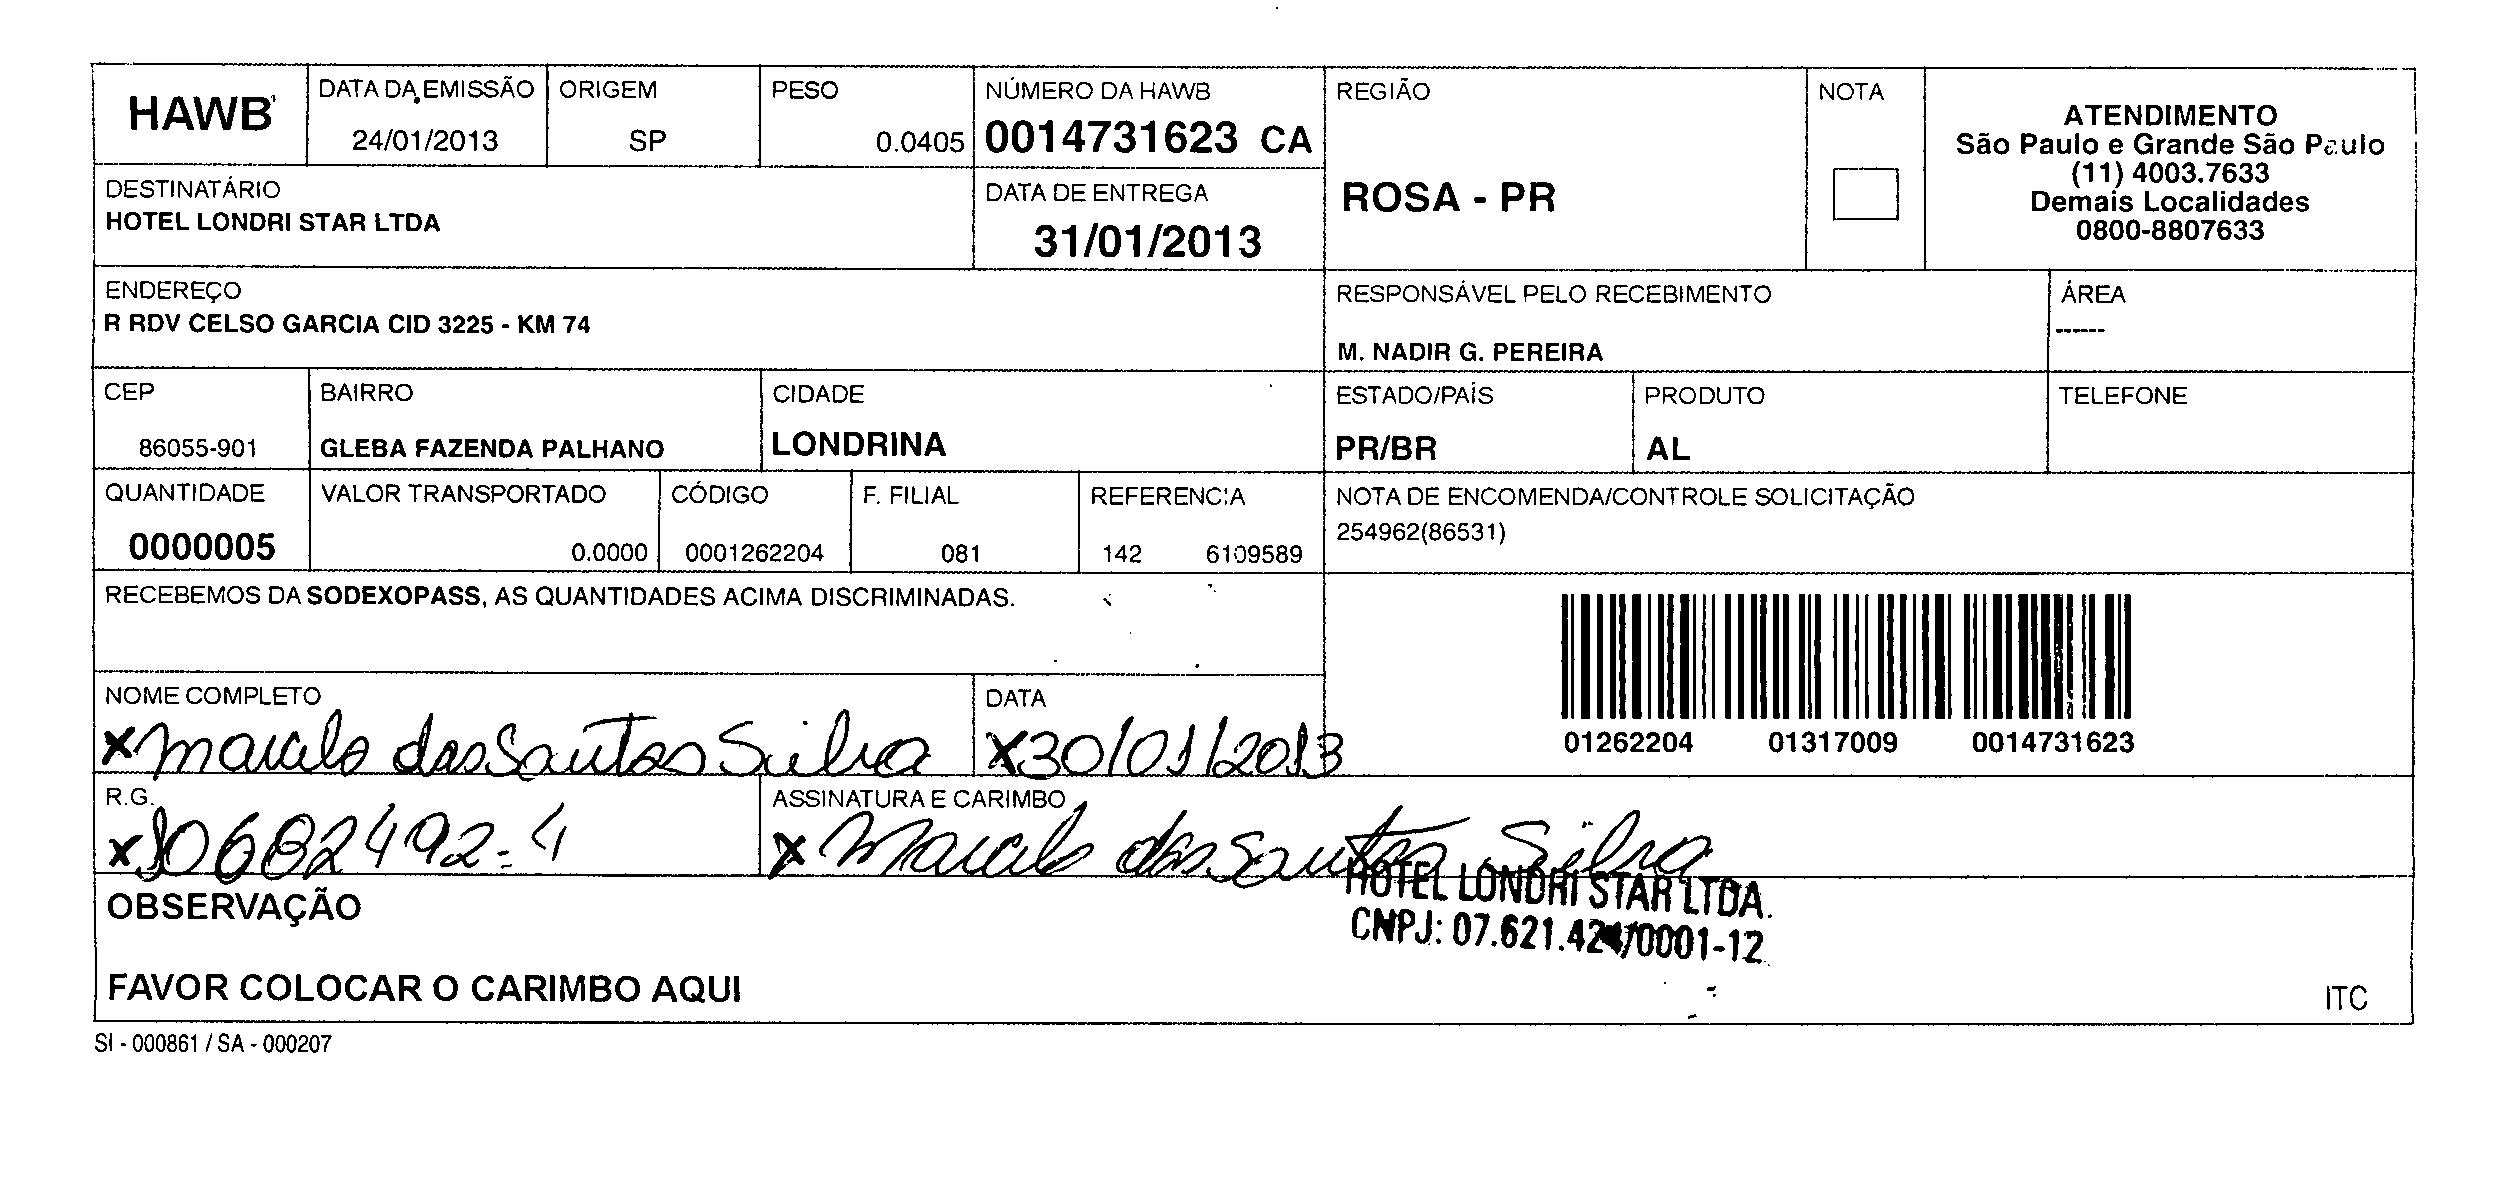 HAWB
DATA DA EMISSÃO
24/01/2013
ORIGEM
SP
PESO
0.0405
NÚMERO DA HAWB
0014731623 CA
REGIÃO
ROSA - PR
NOTA
ATENDIMENTO
São Paulo e Grande São Paulo
(11) 4003.7633
Demais Localidades
0800-8807633
DESTINATÁRIO
HOTEL LONDRI STAR LTDA
DATA DE ENTREGA
31/01/2013
ENDEREÇO
R RDV CELSO GARCIA CID 3225 - KM 74
RESPONSÁVEL PELO RECEBIMENTO
M. NADIR G. PEREIRA
ÁREA
------
CEP
86055-901
BAIRRO
GLEBA FAZENDA PALHANO
CIDADE
LONDRINA
ESTADO/PAÍS
PR/BR
PRODUTO
AL
TELEFONE
QUANTIDADE
0000005
VALOR TRANSPORTADO
0.0000
CÓDIGO
0001262204
F. FILIAL
081
REFERENCIA
142 6109589
NOTA DE ENCOMENDA/CONTROLE SOLICITAÇÃO
254962(86531)
RECEBEMOS DA SODEXOPASS, AS QUANTIDADES ACIMA DISCRIMINADAS.
01262204 01317009 0014731623
NOME COMPLETO
x Marcelo dos Santos Silva
DATA
x 30/01/2013
R.G.
x 10682492-4
ASSINATURA E CARIMBO
x Marcelo dos Santos Silva
HOTEL LONDRI STAR LTDA.
CNPJ: 07.621.424/0001-12
OBSERVAÇÃO
FAVOR COLOCAR O CARIMBO AQUI
ITC
SI - 000861 / SA - 000207